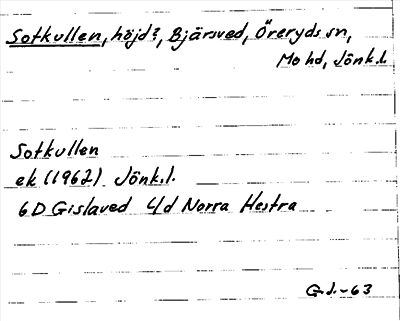 Sotkullen, höjd?, Bjärsved, Öreryds sn,
Mo hd, Jönk.l.
Sotkullen
ek (1962) Jönk.l.
6D Gislaved c/d Norra Hestra
G.J.-63